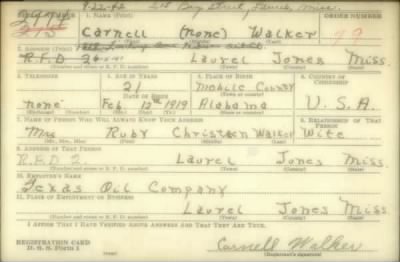 9-22-42 Bay Street, Laurel, Miss.
1. NAME (Print) ORDER NUMBER
Carnell (none) Walker
2. ADDRESS (Print)
R.F.D 2 Laurel Jones Miss.
3. TELEPHONE 4. AGE IN YEARS 5. PLACE OF BIRTH 6. COUNTRY OF CITIZENSHIP
21 Mobile County
DATE OF BIRTH
none Feb. 12th 1919 Alabama U. S. A.
7. NAME OF PERSON WHO WILL ALWAYS KNOW YOUR ADDRESS 8. RELATIONSHIP OF THAT PERSON
Mrs Ruby Christeen Walker Wife
(Mr., Mrs., Miss) (First) (Middle) (Last)
9. ADDRESS OF THAT PERSON
R.F.D 2. Laurel Jones Miss.
(Number and street or R. F. D. number) (Town) (County) (State)
10. EMPLOYER'S NAME
Texas Oil Company
11. PLACE OF EMPLOYMENT OR BUSINESS
Laurel Jones Miss.
(Number and street or R. F. D. number) (Town) (County) (State)
I AFFIRM THAT I HAVE VERIFIED ABOVE ANSWERS AND THAT THEY ARE TRUE.
REGISTRATION CARD
D. S. S. Form 1
Carnell Walker
(Registrant's signature)